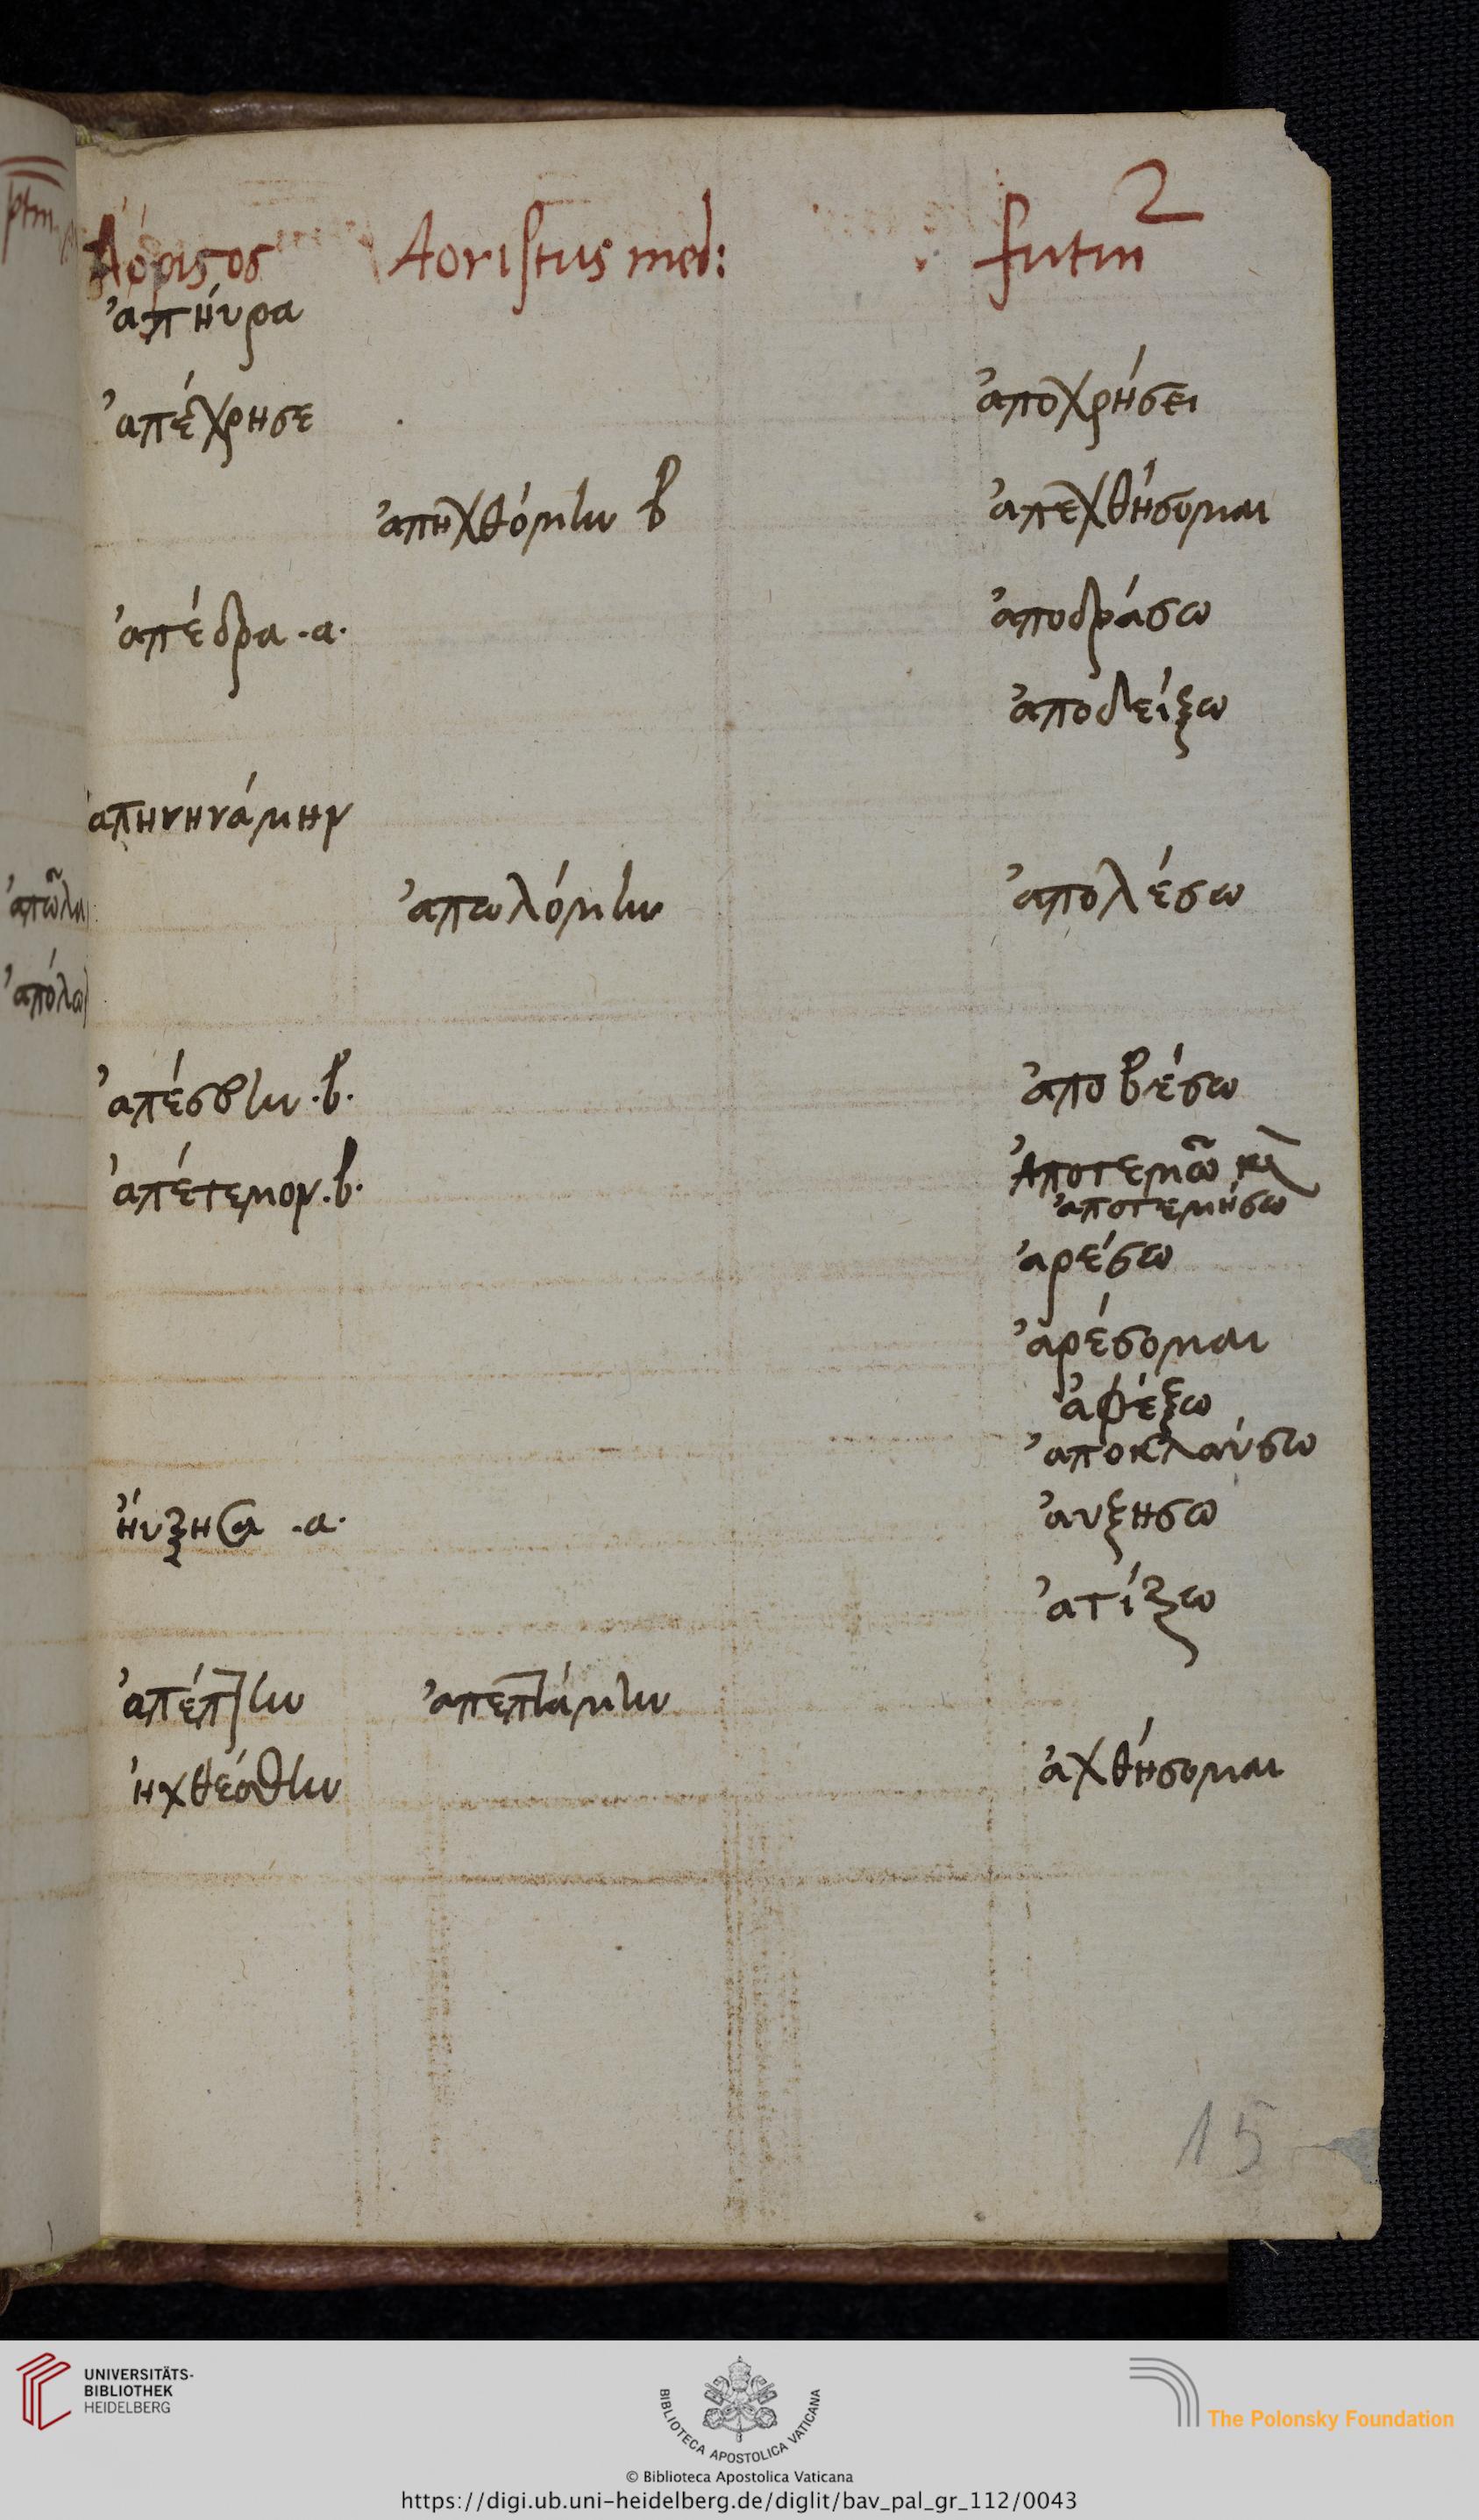 Ἀόριστος Aoristus med: futur 2
ἀπήυρα
ἀπέχρησε ἀποχρήσει
ἀπηχθόμην β ἀπεχθήσομαι
ἀπέδρα .α. ἀποδράσω
ἀποδείξω
ἀπηνηνάμην
ἀπωλόμην ἀπολέσω
ἀπέσβην .β. ἀποβέσω
ἀπέτεμον .β. Ἀποτεμῶ καὶ
ἀποτεμήσω
ἀρέσω
ἀρέσομαι
ἀφέξω
ἀποκλαύσω
ἠύξησα .α. ἀυξησω
ἀτίξω
ἀπέπτην ἀπεπτάμην
ἠχθέσθην ἀχθήσομαι
15
UNIVERSITÄTS-
BIBLIOTHEK
HEIDELBERG
BIBLIOTECA APOSTOLICA VATICANA
The Polonsky Foundation
© Biblioteca Apostolica Vaticana
https://digi.ub.uni-heidelberg.de/diglit/bav_pal_gr_112/0043